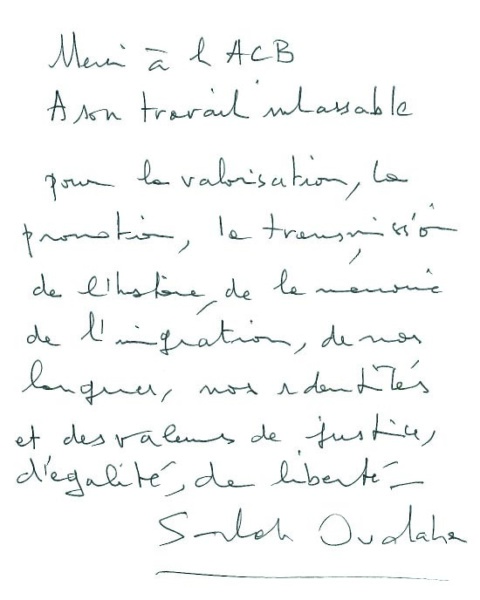 Merci à l'ACB
A son travail inlassable
pour la valorisation, la
promotion, la transmission
de l'histoire, de la memoire
de l'imigration, de nos
langues, nos identités
et des valeurs de justice,
d'égalité, de liberté –
Salah Oudahar